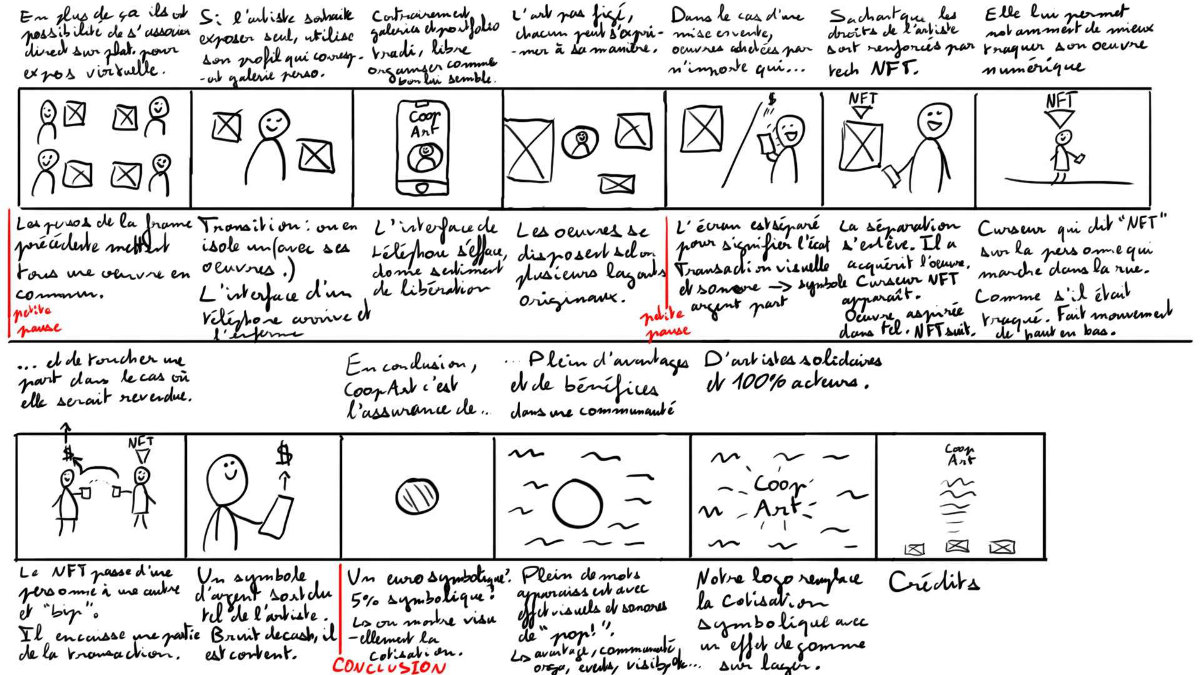 En plus de ça ils ont
possibilité de s'associer
direct sur plat. pour
expos virtuelle.
Si l'artiste souhaite
exposer seul, utilise
son profil qui corresp-
-ont galerie perso.
Contrairement
galeries et portfolio
tradi, libre
organiser comme
bon lui semble.
L'art pas figé,
chacun peut s'expri-
-mer à sa manière.
Dans le cas d'une
mise en vente,
oeuvres achetées par
n'importe qui...
Sachant que les
droits de l'artiste
sont renforcés par
tech NFT.
Elle lui permet
notamment de mieux
traquer son oeuvre
numérique
Coop
Art
$
NFT
NFT
Les persos de la frame
précédente mettent
tous une oeuvre en
commun.
petite
pause
Transition : on en
isole un (avec ses
oeuvres.)
L'interface d'un
téléphone arrive et
l'enferme
L'interface de
téléphone s'efface,
donne sentiment
de libération
Les oeuvres se
disposent selon
plusieurs layouts
originaux.
petite
pause
L'écran est séparé
pour signifier l'écat
Transaction visuelle
et sonore → symbole
argent part
La séparation
s'enlève. Il a
acquérit l'oeuvre.
Curseur NFT
apparaît.
Oeuvre aspirée
dans tel. NFT suit.
Curseur qui dit "NFT"
sur la personne qui
marche dans la rue.
Comme s'il était
traqué. Fait mouvement
de haut en bas.
... et de toucher une
part dans le cas où
elle serait revendue.
En conclusion,
CoopArt c'est
l'assurance de...
... Plein d'avantages
et de bénéfices
dans une communauté
D'artistes solidaires
et 100% acteurs.
$
NFT
$
Coop
Art
Coop
Art
Le NFT passe d'une
personne à une autre
et "bip".
Il encaisse une partie
de la transaction.
Un symbole
d'argent sort du
tel de l'artiste.
Bruit de cash, il
est content.
Un euro symbolique?
5% symbolique?
↳ on montre visu
-ellement la
cotisation.
CONCLUSION
Plein de mots
apparaissent avec
effet visuels et sonores
de "pop!".
↳ avantage, communauté
orga, events,
Notre logo remplace
la cotisation
symbolique avec
un effet de gomme
sur layer.
Crédits